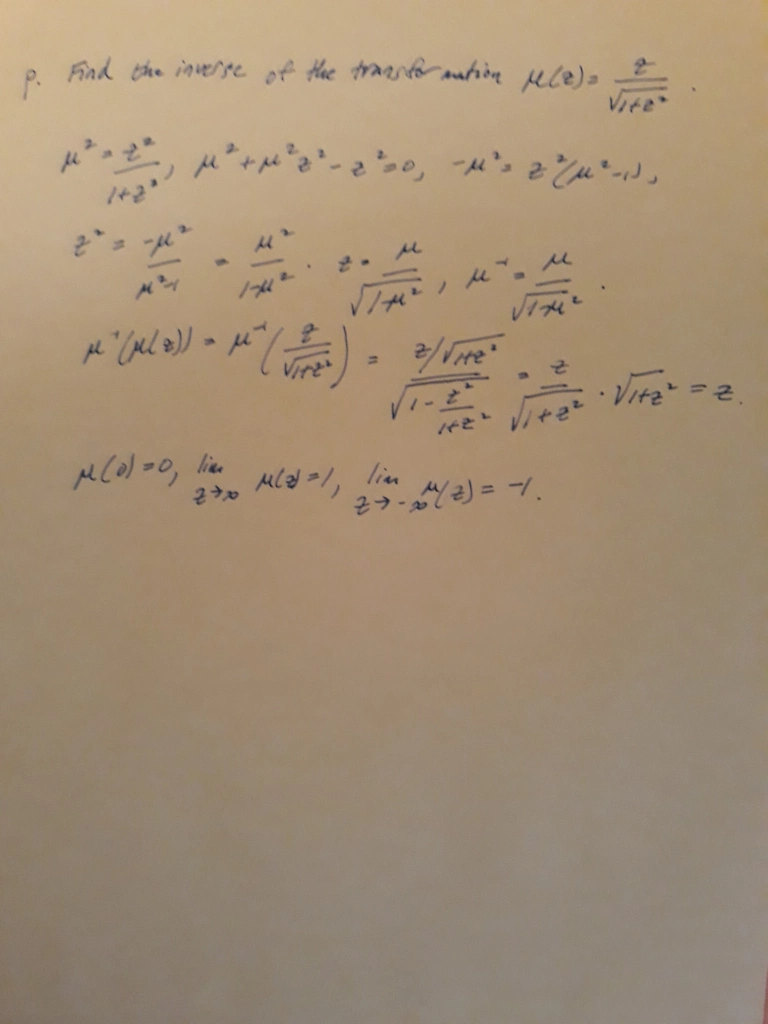 p. Find the inverse of the transformation μ(z) = z/√(1+z²).
μ² = z²/(1+z²), μ² + μ²z² - z² = 0, -μ² = z²(μ²-1),
z² = -μ²/(μ²-1) = μ²/(1-μ²). z = μ/√(1-μ²), μ⁻¹ = μ/√(1-μ²).
μ⁻¹(μ(z)) = μ⁻¹(z/√(1+z²)) = (z/√(1+z²))/√(1 - z²/(1+z²)) = z/√(1+z²) · √(1+z²) = z.
μ(0) = 0, lim z→∞ μ(z) = 1, lim z→-∞ μ(z) = -1.